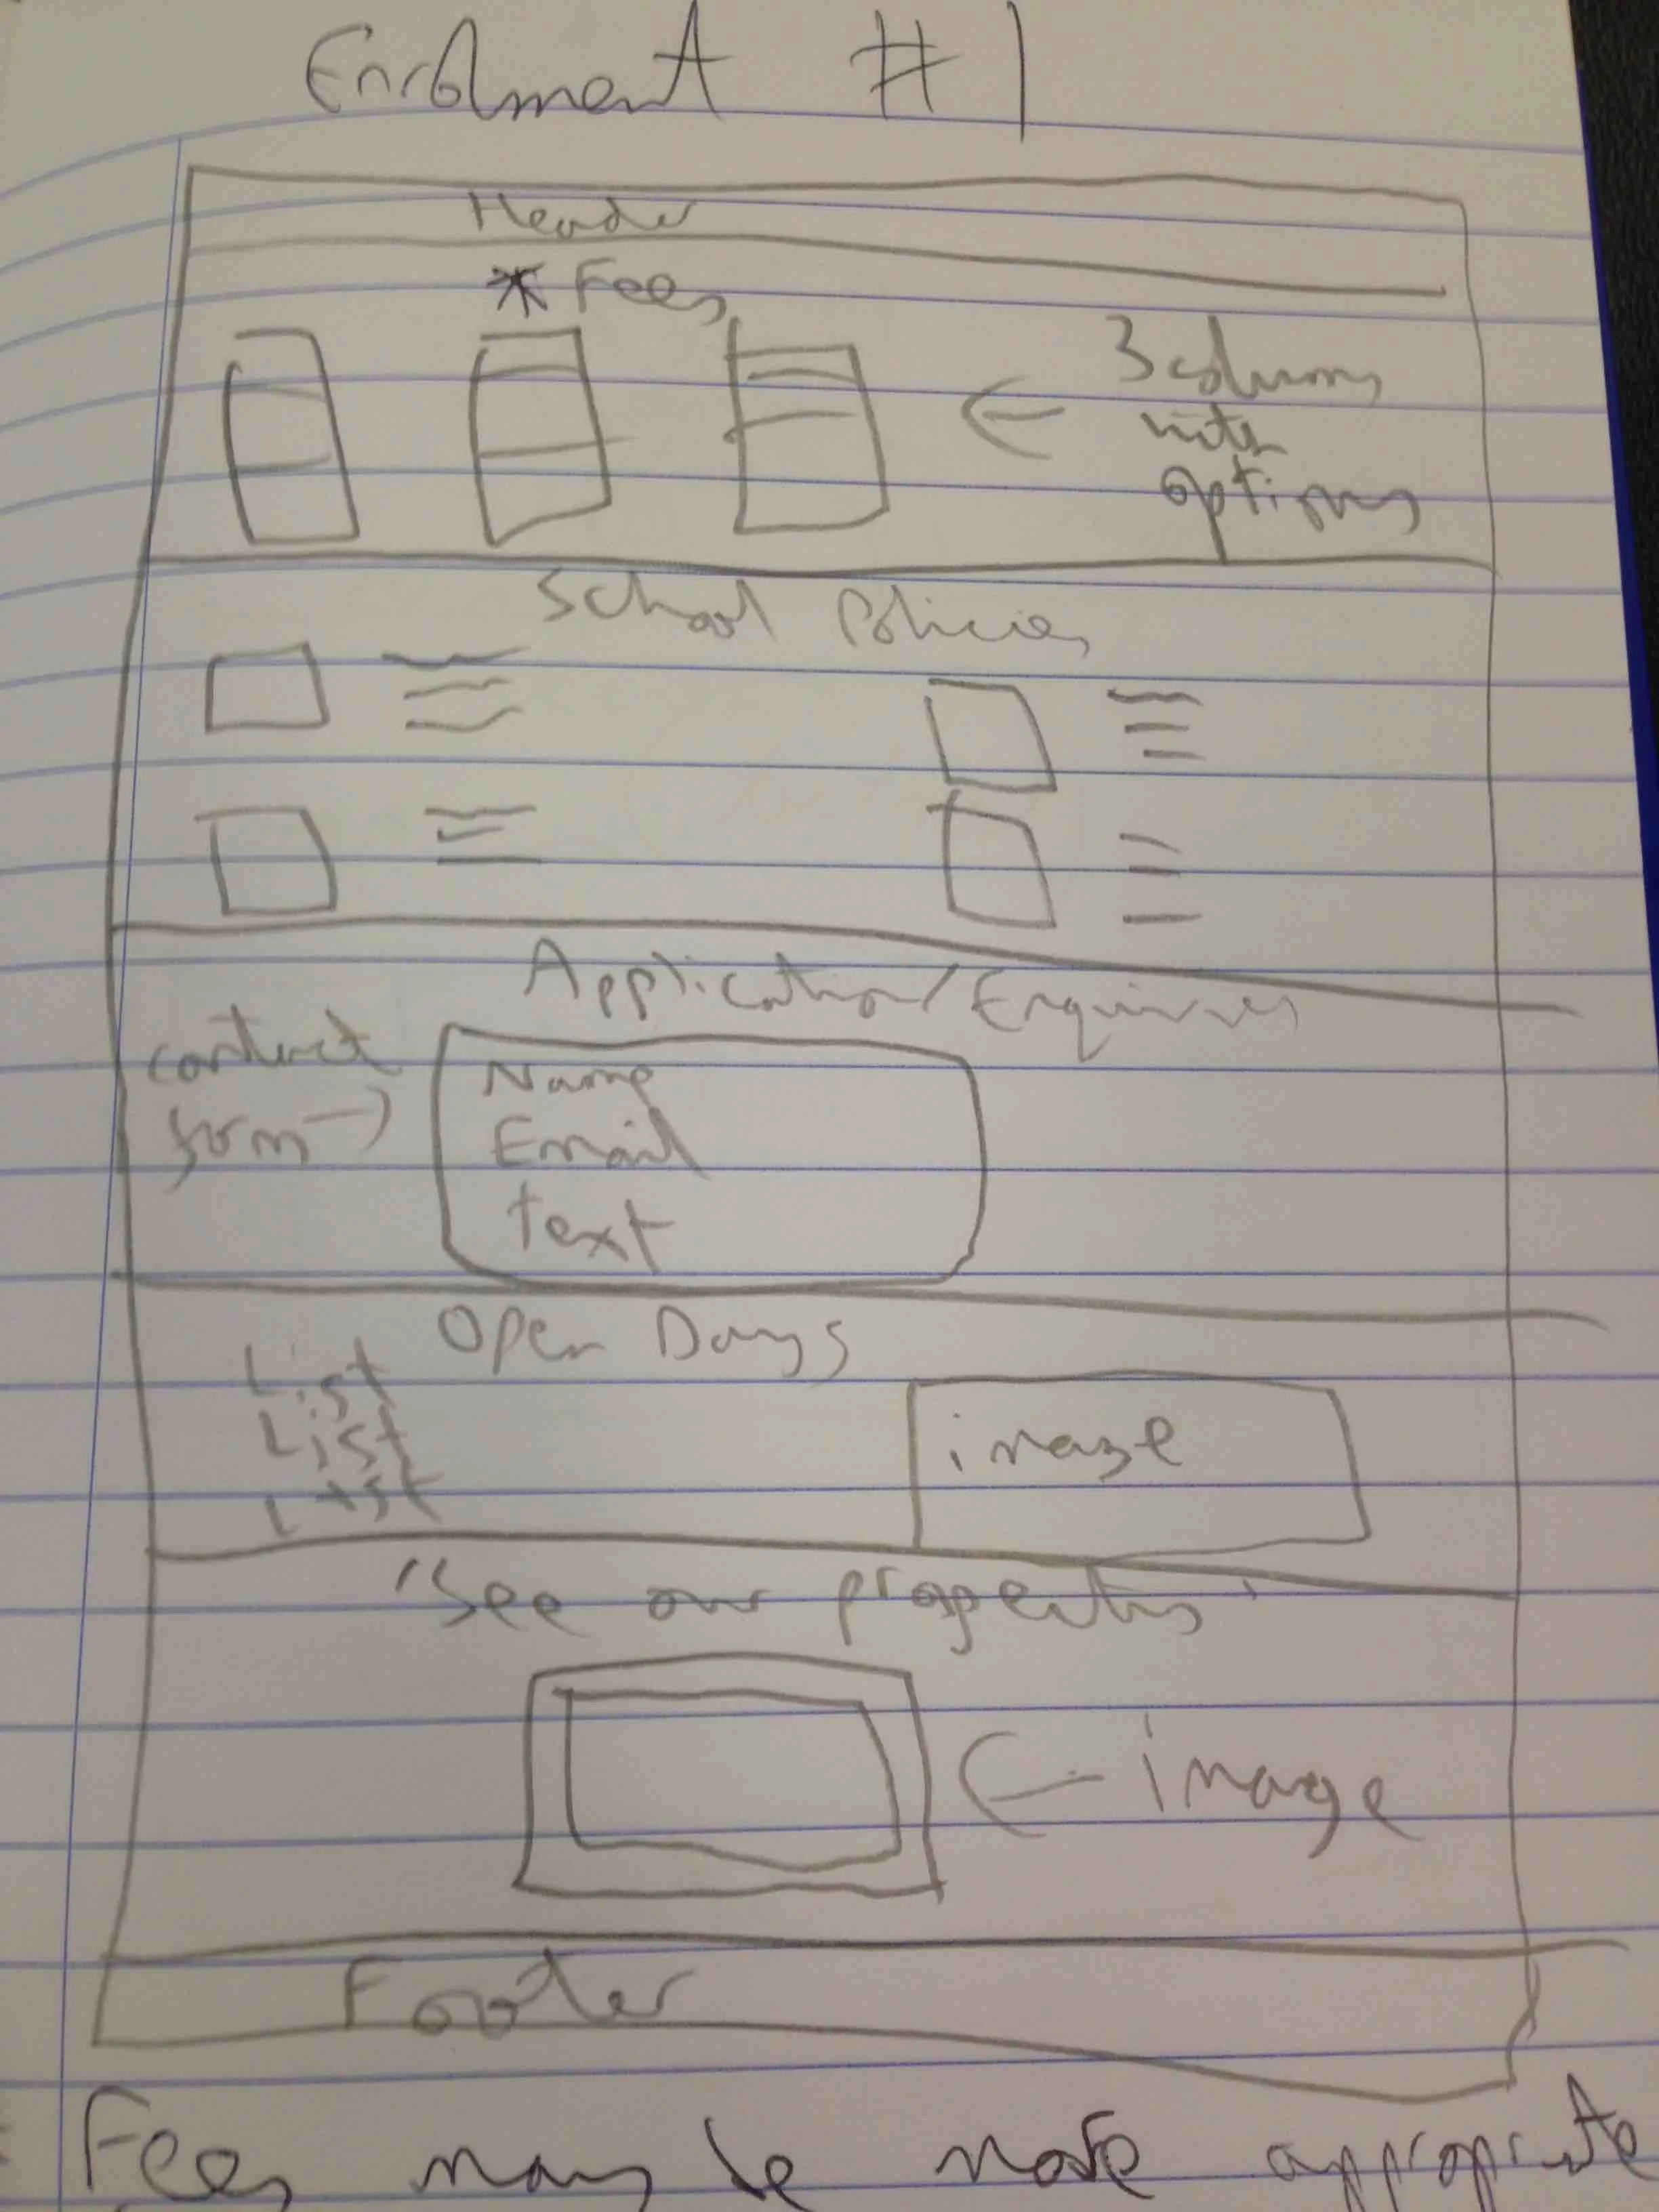 Enrolment #1
Header
* Fees
3 columns
with
options
School Policies
Application/Enquiries
contact
form →
Name
Email
text
Open Days
List
List
List
image
"See our properties"
← image
Footer
Fees may be more appropriate